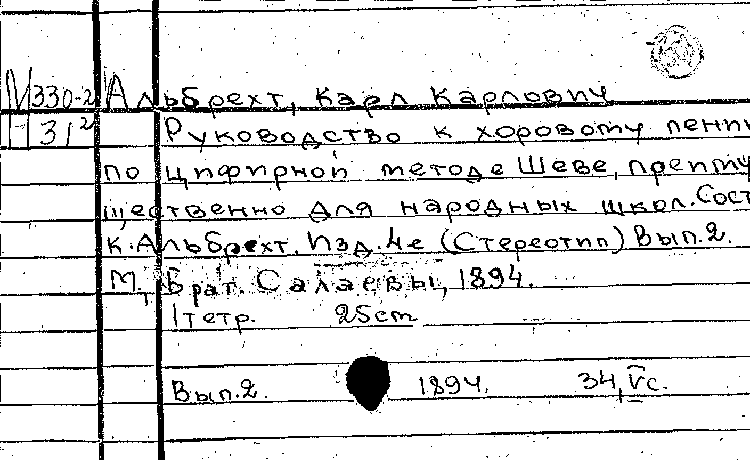 М 330-2 Альбрехт, Карл Карлович
Н 31² Руководство к хоровому пени
по цифирной методе Шеве, преиму
щественно для народных школ. Сост
К. Альбрехт. Изд. 4е (Стереотип) Вып. 2.
М., Брат. Салаевы, 1894.
1 тетр. 25 cm
Вып. 2. 1894. 34, V с.